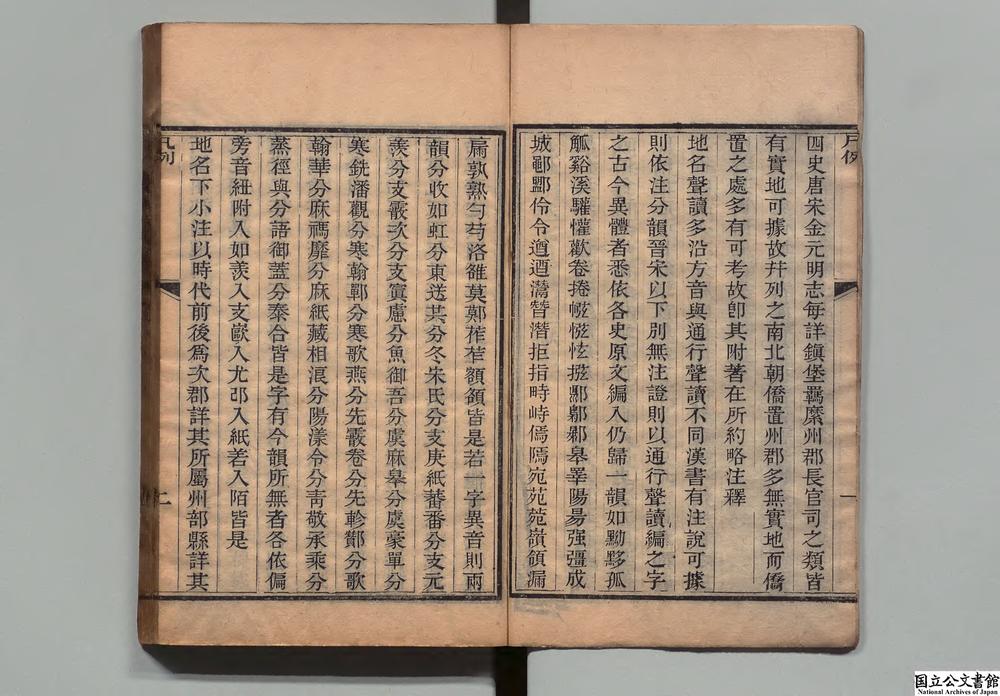 凡例
一
四史唐宋金元明志每詳鎭堡羈縻州郡長官司之類皆
有實地可據故幷列之南北朝僑置州郡多無實地而僑
置之處多有可考故卽其附著在所約略注釋
地名聲讀多沿方音與通行聲讀不同漢書有注說可據
則依注分韻晉宋以下別無注證則以通行聲讀編之字
之古今異體者悉依各史原文編入仍歸一韻如黝黟孤
觚谿溪驩懽歡卷捲
皋睪陽昜强彊成
城鄳鄳伶令遒逎灊朁潛拒指畤峙傿隝宛苑菀嶺領漏
扁孰熟勻芶洛雒莫鄭莋筰額頟皆是若一字異音則兩
韻分收如虹分東送其分冬朱氏分支庚紙蕃番分支元
羨分支霰次分支寘慮分魚御吾分虞麻皋分虞豪單分
寒銑潘觀分寒翰鄲分寒歌燕分先霰卷分先軫酇分歌
翰華分麻禡靡分麻紙藏相浪分陽漾令分靑敬承乘分
蒸徑與分語御蓋分泰合皆是字有今韻所無者各依偏
旁音紐附入如羨入支嶔入尤邔入紙若入陌皆是
地名下小注以時代前後爲次郡詳其所屬州部縣詳其
凡例
二
国立公文書館
National Archives of Japan